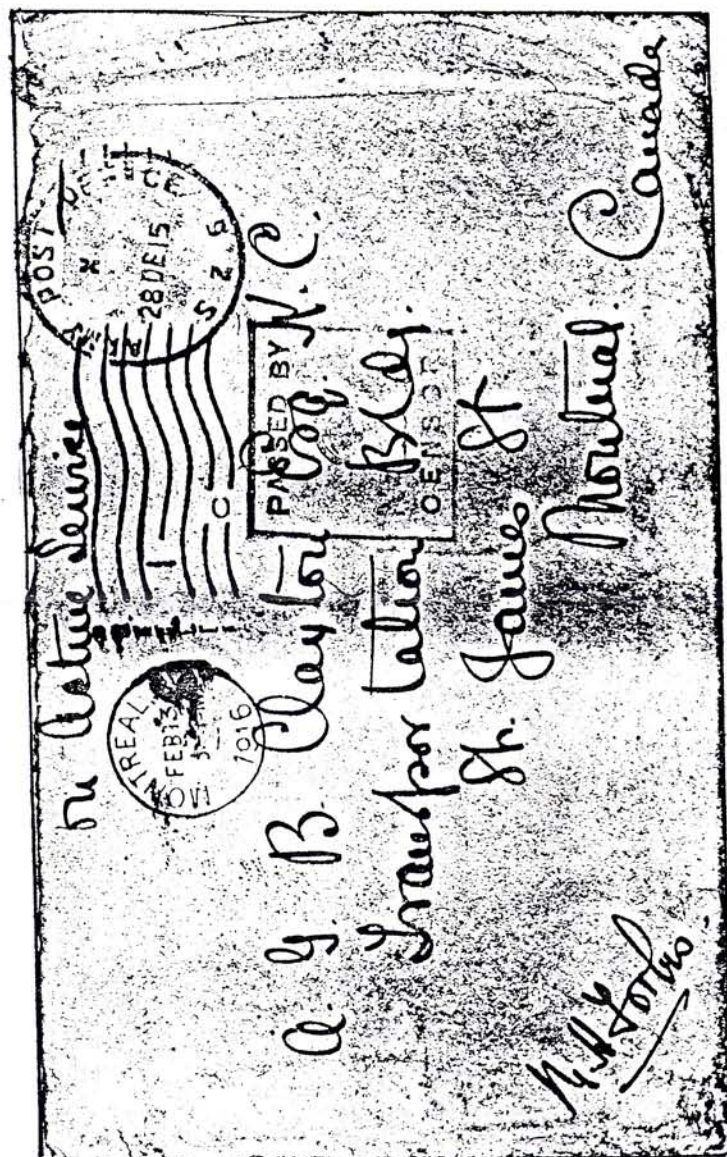 On Active Service
ARMY POST OFFICE
X
28 DE 15
S Z 6
MONTREAL
FEB 13
1916
PASSED BY
CENSOR
A. G. B. Claxton K.C.
Transportation Bldg.
St. James St
Montreal.
Canada